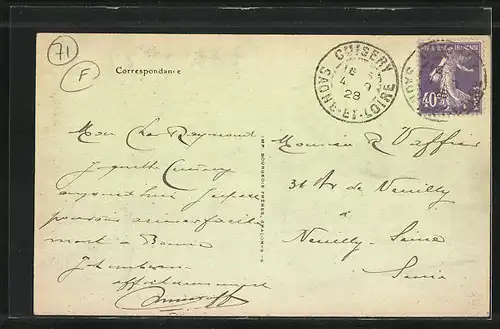 71
F
Correspondance
CUISERY
16
4 - 9
28
SAÔNE-ET-LOIRE
40c
Mon Cher Raymond
Je quitte Cuisery
aujourd'hui J'espère
pouvoir arriver facile
ment à
Je t'embrasse
affectueusement
IMP. BOURGEOIS FRÈRES, CHALON-S-S
Monsieur R Vaffier
31 Av de Neuilly
à
Neuilly-Seine
Seine